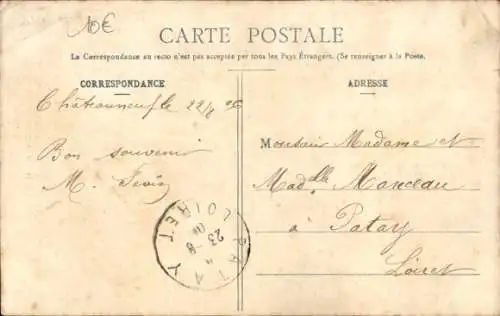 10€
CARTE POSTALE
La Correspondance au recto n'est pas acceptée par tous les Pays Étrangers. (Se renseigner à la Poste.
CORRESPONDANCE
Châteauneuf le 22/8 06
Bon souvenir
M.
ADRESSE
Monsieur Madame et
Mad.elle Marceau
à Patay
Loiret
PATAY
23 -8
LOIRET